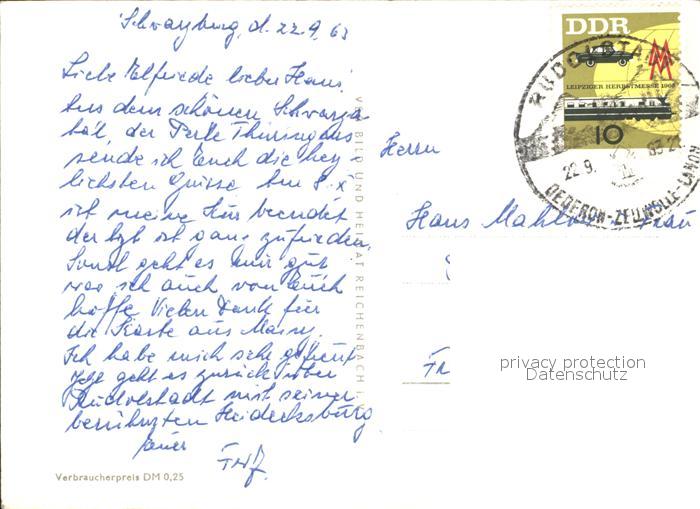 Schwarzburg, d. 22.9.63
Liebe Elfriede lieber Hans!
Aus dem schönen Schwarza
tal, der Perle Thüringens
sende ich Euch die herz
lichsten Grüsse. Am 8.X.
ist meine Kur beendet
der Arzt ist ganz zufrieden.
Sonst geht es mir gut
was ich auch von Euch
hoffe. Vielen Dank für
die Karte aus
Ich habe mich sehr gefreut
Jetzt geht es zurück über
Rudolstadt mit seiner
berühmten Heidecksburg
Euer
Verbraucherpreis DM 0,25
BILD UND HEIMAT REICHENBACH I. V.
DDR
MM
LEIPZIGER HERBSTMESSE 1963
10
RUDOLSTADT
22.9. 63-21
DEDERON-ZELLWOLLE-
Herrn
Hans Frau
privacy protection
Datenschutz